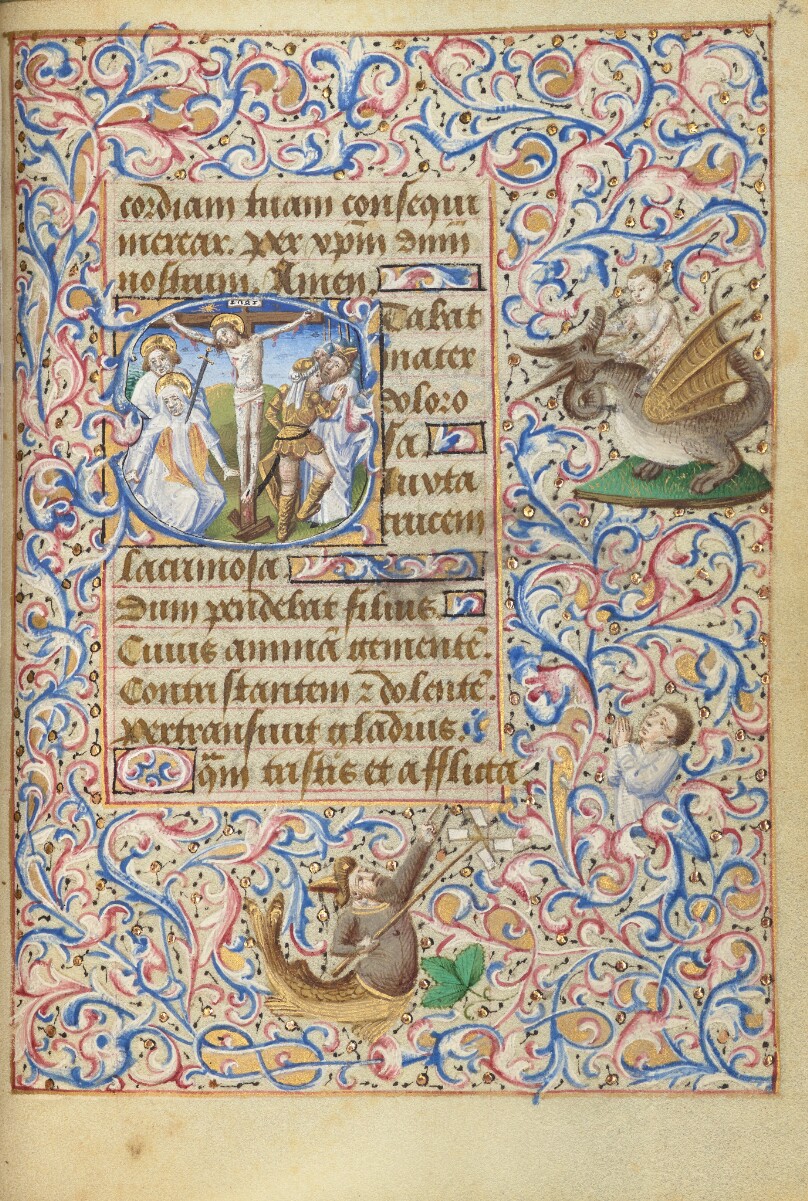 74
cordiam tuam consequi
merear. Per xp̄m dn̄m
nostrum. Amen.
INRI
Stabat
mater
doloro
sa
iuxta
crucem
lacrimosa.
Dum pendebat filius.
Cuius animā gementē.
Contristantem ⁊ dolentē.
Pertransiuit gladius.
O q̄m tristis et afflicta